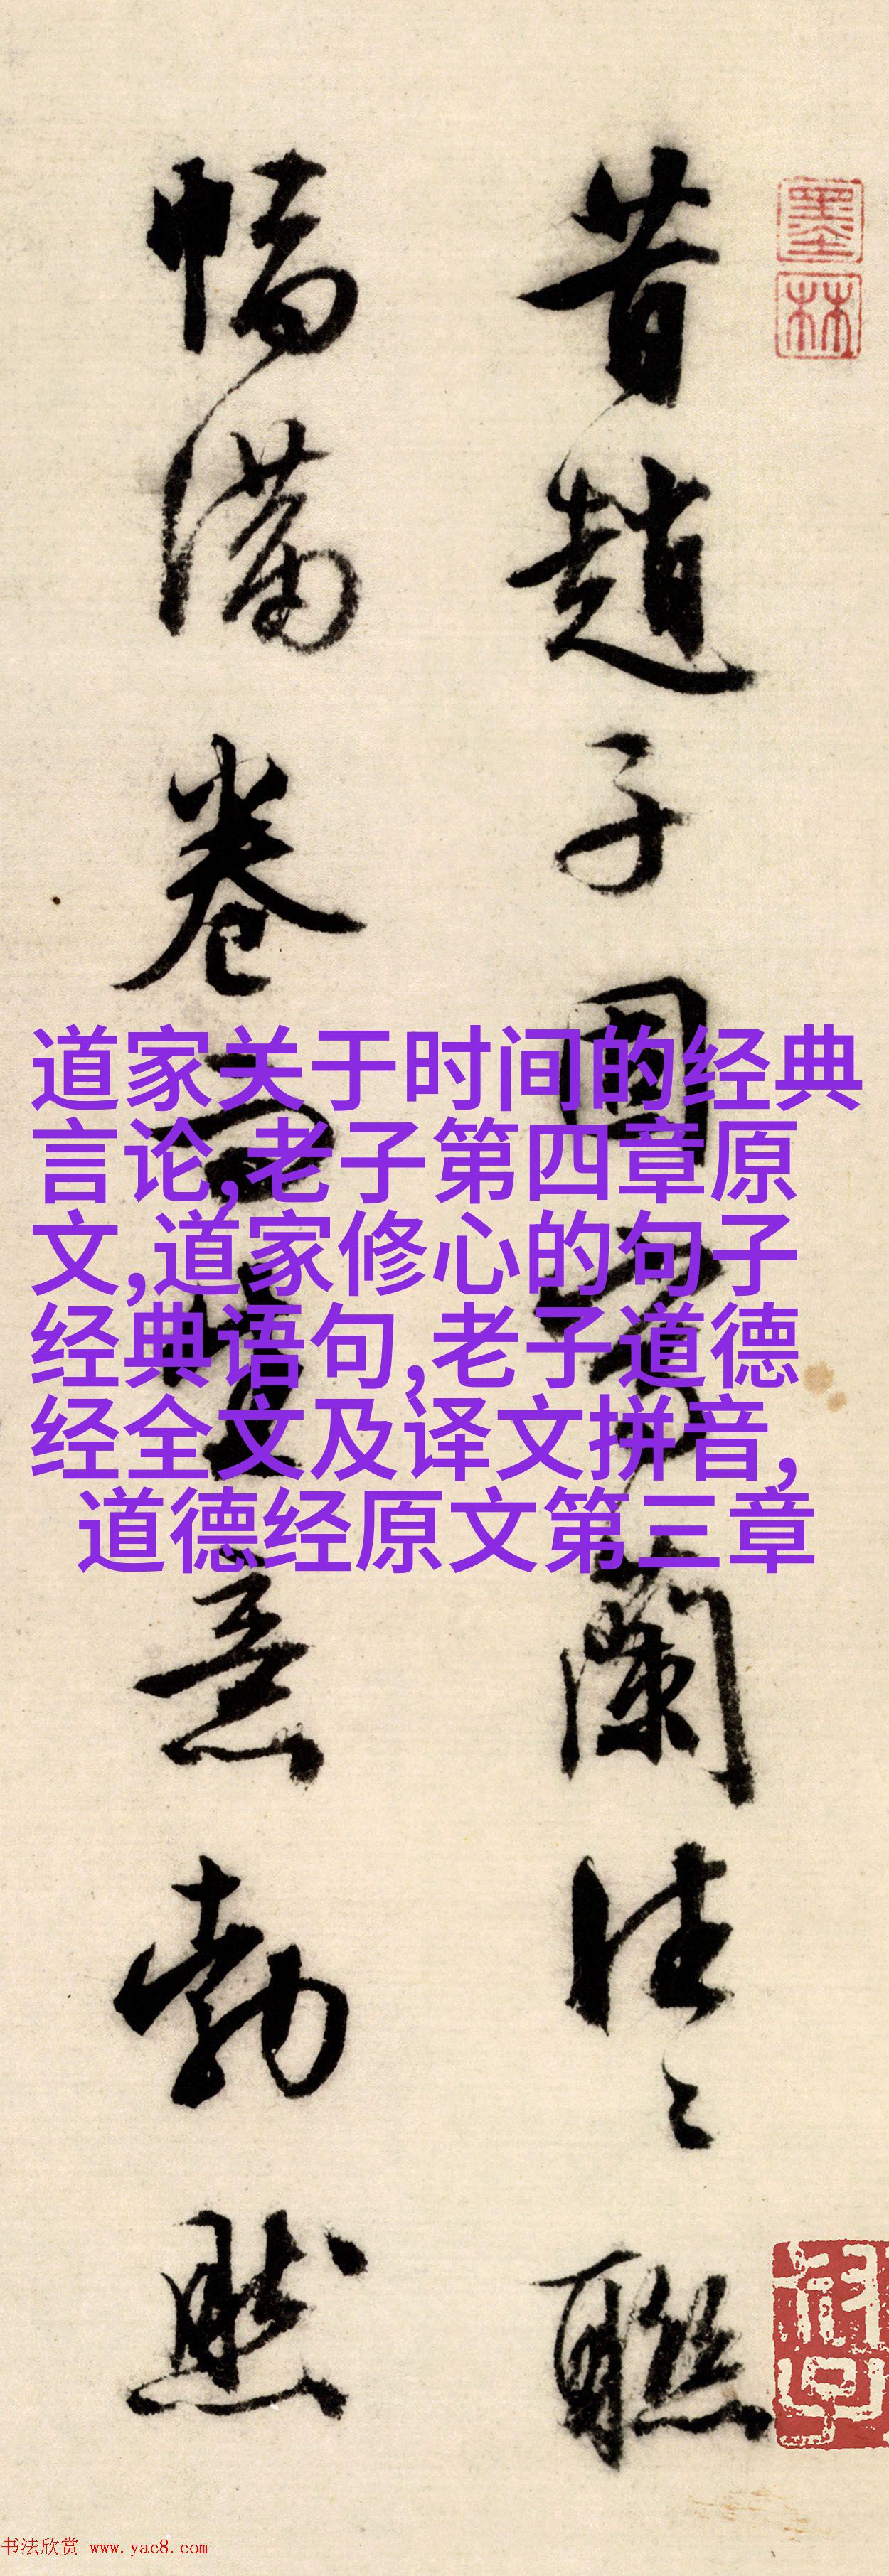 墨林
昔趙子固寫蘭往々聯
幅滿卷而生意勃然
道家关于时间的经典
言论,老子第四章原
文,道家修心的句子
经典语句,老子道德
经全文及译文拼音,
道德经原文第三章
书法欣赏 www.yac8.com